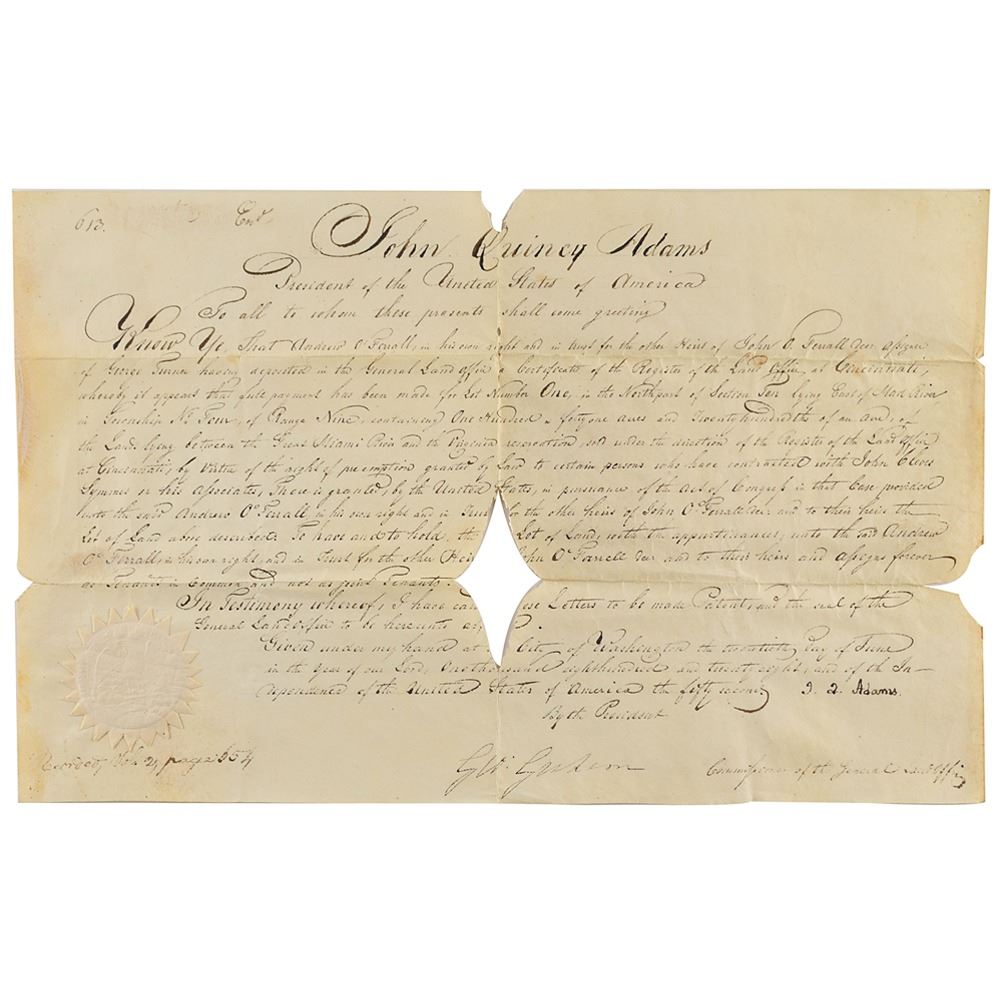 613. End.
John Quincy Adams
President of the United States of America
To all to whom these presents shall come greeting
Know Ye, That Andrew O'Ferrall, in his own right and in trust for the other Heirs of John O. Ferrall decr. assignee
of George Turner having deposited in the General Land Office a Certificate of the Register of the Land Office, at Cincinnati,
whereby it appears that full payment has been made for Lot Number One, in the North part of Section Ten lying East of Mad River
in Township No. Four, of Range Nine, containing One Hundred & forty one acres and Twenty hundredths of an acre, of
the Land lying between the Great Miami River and the Virginia reservation, sold under the direction of the Register of the Land Office
at Cincinnati, by virtue of the right of preemption granted by Law to certain persons who have contracted with John Cleves
Symmes or his associates, There is granted, by the United States, in pursuance of the act of Congress in that Case provided
unto the said Andrew O'Ferrall in his own right and in Trust for the other heirs of John O'Ferrall decr. and to their heirs the
Lot of Land above described: To have and to hold, the Lot of Land, with the appurtenances, unto the said Andrew
O'Ferrall in his own right, and in Trust for the other Heirs John O'Farrell decr and to their heirs and assigns forever
as Tenants in Common and not as joint Tenants.
In Testimony whereof, I have Letters to be made Patent, and the seal of the
General Land Office to be hereunto
Given under my hand at City of Washington the twentieth Day of June
in the year of our Lord, One thousand eight hundred and twenty eight, and of the In-
dependence of the United States of America the fifty second, J. Q. Adams.
By the President
Recorded, Vol. 2, page 654 Geo: Graham Commissioner of the General Land Office